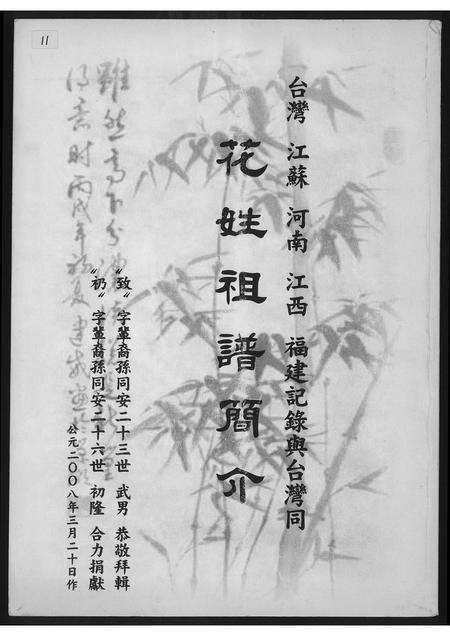 11
台灣 江蘇 河南 江西 福建記錄與台灣同
花姓祖譜簡介
“致”字輩裔孫同安二十三世 武男 恭敬拜輯
“礽”字輩裔孫同安二十六世 初隆 合力捐獻
公元二00八年三月二十日作
雖然高下分
得意時丙戌年初夏建成畫